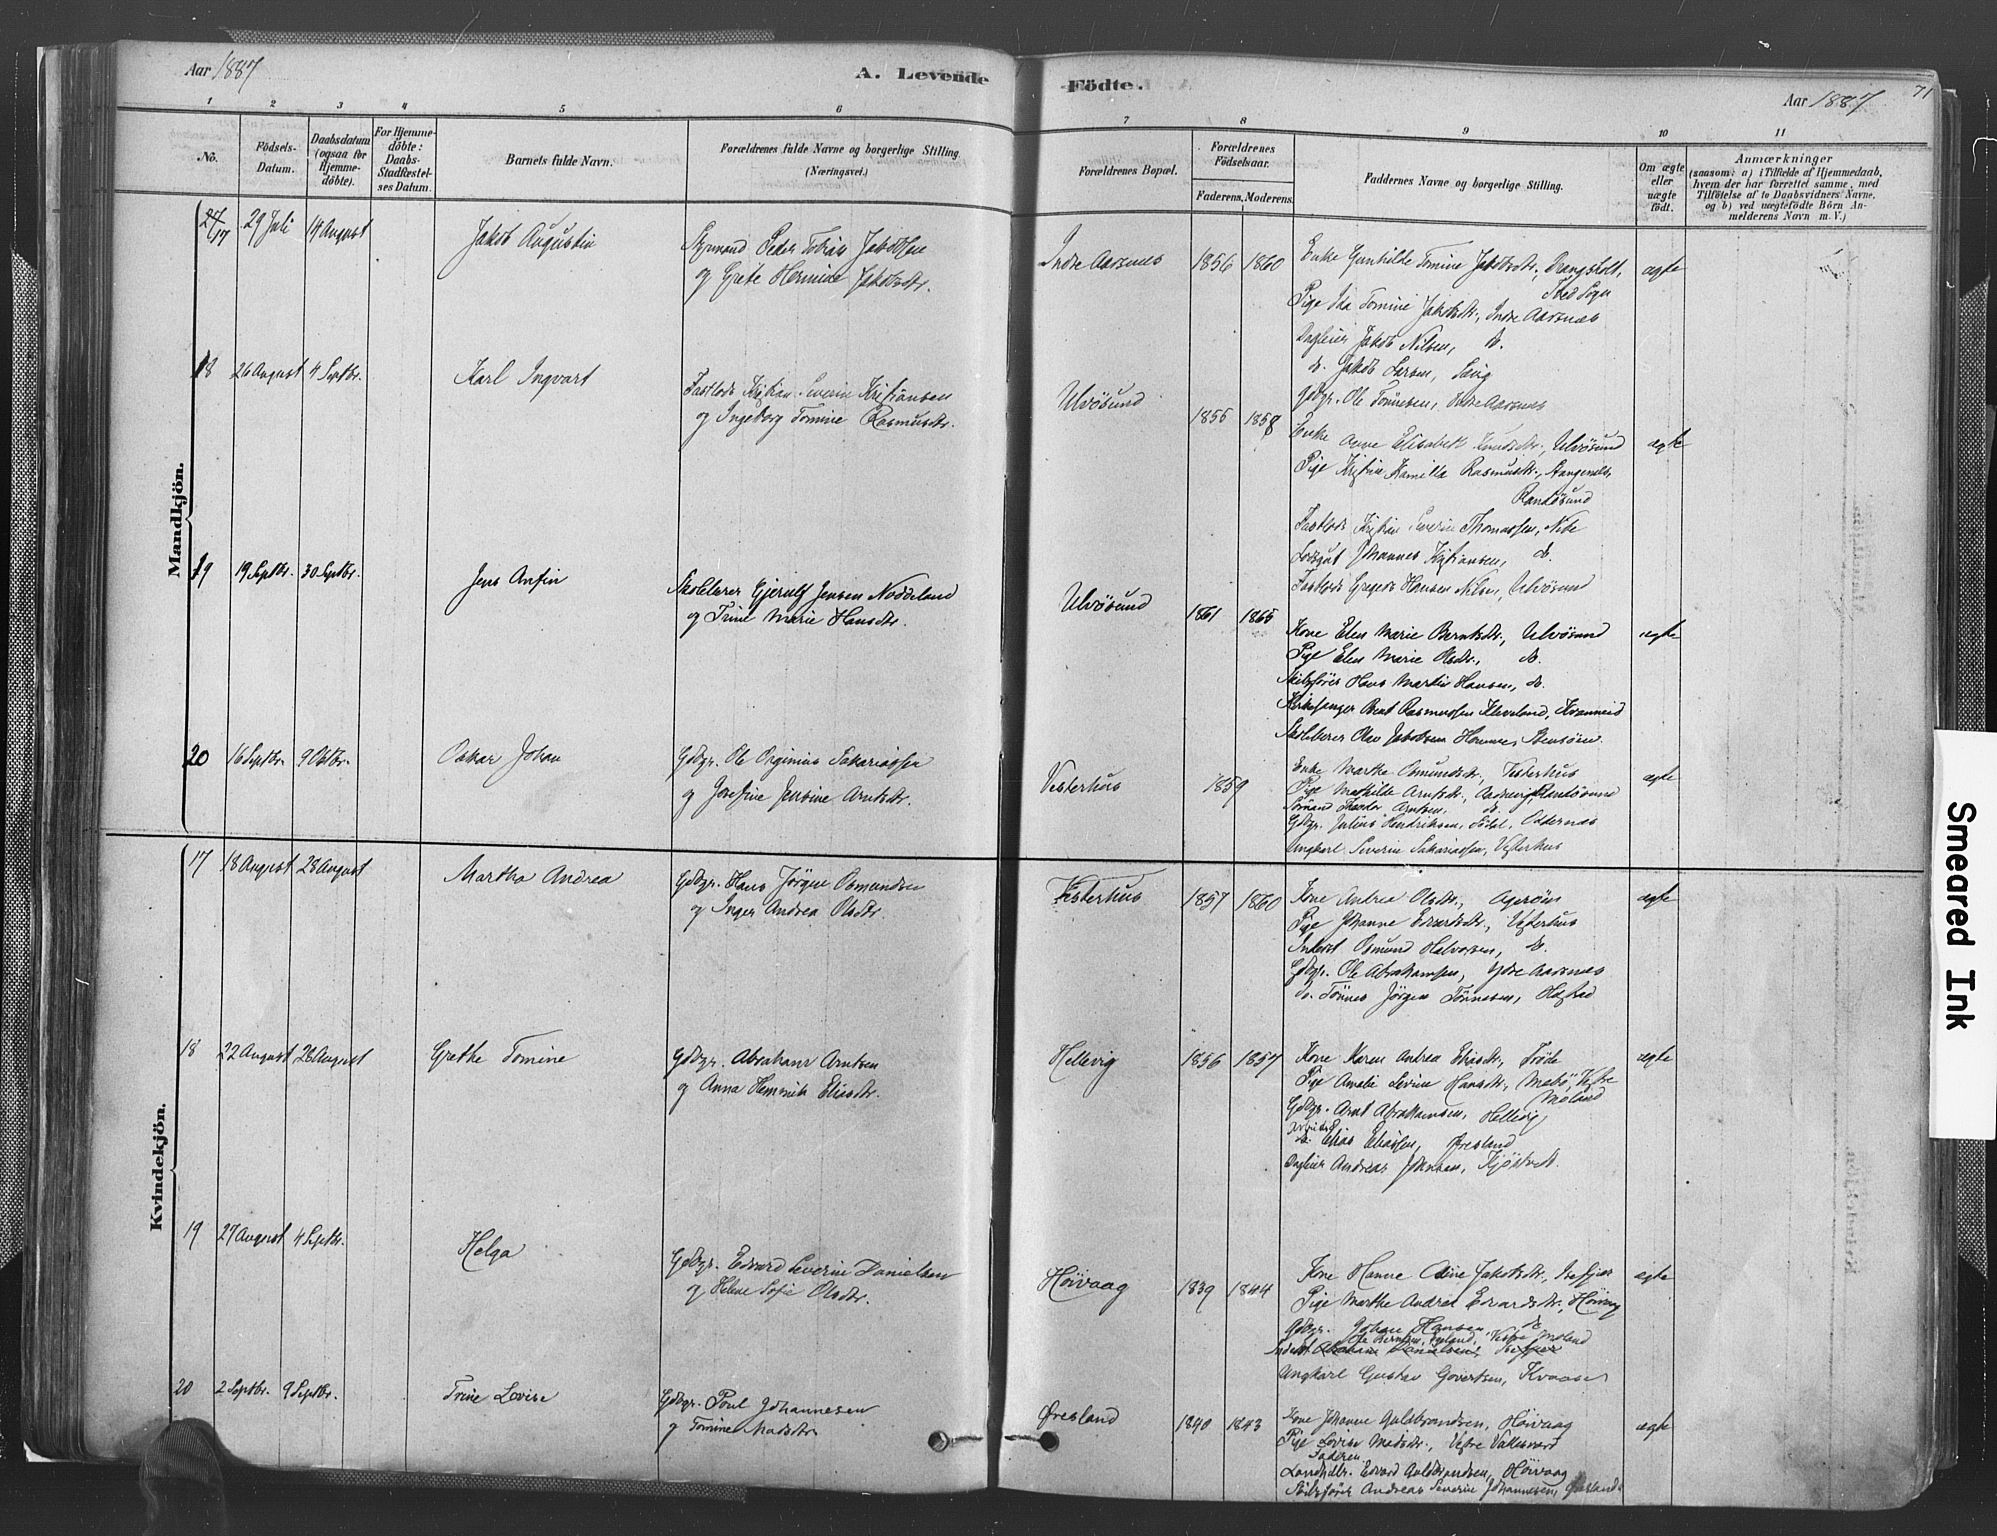 Aar 1887
A. Levende
Födte.
Aar 1887
71
1
2
3
4
5
6
7
8
9
10
11
No.
Födsels-
Datum.
Daabsdatum
(ogsaa for
Hjemme-
döbte).
For Hjemme-
döbte:
Daabs-
Stadfæstel-
ses Datum.
Barnets fulde Navn.
Forældrenes fulde Navne og borgerlige Stilling
(Næringsvei.)
Forældrenes Bopæl.
Forældrenes
Födselsaar.
Faderens. Moderens.
Faddernes Navne og borgerlige Stilling.
Om ægte
eller
uægte
födt.
Anmærkninger
(saasom: a) i Tilfælde af Hjemmedaab,
hvem der har forrettet samme, med
Tilföielse af to Daabsvidners Navne,
og b) ved uægtefödte Börn An-
melderens Navn m. V.)
Mandkjön.
17
29 Juli
14 August
Jakob Augustin
Styrmand Peder Tobias Jakobsen
og Grete Hermine Jakobsdtr.
Indre Aarsnes
1856
1860
Enke Gunhilde Tomine Jakobsdtr., Drangsholt,
Tved Sogn
Pige Ida Tomine Jakobsdtr., Indre Aarsnes
Inglier Jakob Nilsen, do.
do. Jakob Larsen,
Gdbgr. Ole Tönnesen, Indre Aarsnes
ægte
18
26 August
4 Septbr.
Karl Ingvart
Fastlods Kristian Severin Kristiansen
og Ingeborg Tomine Rasmusdtr.
Ulvösund
1855
1858
Enke Anne Elisabeth Knudsdtr., Ulvösund
Pige Kristine Kamilla Rasmusdtr.,
Randösund
Fastlods Kristian Severin Thomassen,
Lodsgut Johannes Kristiansen, do.
Fastlods Gregers Hansen Nilsen, Ulvösund
ægte
19
19 Septbr.
30 Septbr.
Jens Anfin
Skolelærer Gjerulf Jensen Noddeland
og Trine Marie Hansdtr.
Ulvösund
1861
1865
Kone Elen Marie Berntsdtr., Ulvösund
Pige Elen Marie Olsdtr., do.
Skibsförer Hans Martin Hansen, do.
Kirkesanger Bent Rasmussen Kleveland, Kvanneid
Skolelærer Olav Jakobsen Homme,
ægte
20
16 Septbr.
9 Oktbr.
Oskar Johan
Gdbgr. Ole Orginius Sakariassen
og Josefine Jensine Arntsdtr.
Vesterhus
1859
Enke Marthe Osmundsdtr., Vesterhus
Pige Mathilde Arntsdtr., Randösund
Sömand Theodor Arntsen, do.
Gdbgr. Julius Hendriksen, Oddernes
Ungkarl Severin Sakariassen, Vesterhus
ægte
Kvindekjön.
17
18 August
28 August
Martha Andrea
Gdbgr. Hans Jörgen Osmundsen
og Inger Andrea Olsdtr.
Vesterhus
1857
1860
Kone Andrea Olsdtr., Ageröen
Pige Johanne Edvardsdtr., Vesterhus
Inderst Osmund Halvorsen, do.
Gdbgr. Ole Abrahamsen, Ydre Aarsnes
do. Tönnes Jörgen Tönnesen, Hæstad
ægte
18
22 August
28 August
Grethe Tomine
Gdbgr. Abraham Arntsen
og Anna Hemmik Eliasdtr.
Hellevig
1856
1857
Kone Karen Andrea Eliasdtr., Tröde
Pige Amelie Levine Hansdtr., Mebö, Vestre
Moland
Gdbgr. Arnt Abrahamsen, Hellevig
Elias Eliassen, Öresland
Inglier Andreas Johnsen,
ægte
19
27 August
4 Septbr.
Helga
Gdbgr. Edvard Severin Danielsen
og Helene Sofie Olsdtr.
Höivaag
1839
1844
Kone Hanne Oline Jakobsdtr., Isefjær
Pige Marthe Andrea Edvardsdtr., Höivaag
Gdbgr. Johan Hansen, do.
Ole Berntsen, Vestre Moland
Inderst Abraham Danielsen, Isefjær
Ungkarl Gustav Govertsen, Kvaase
ægte
20
2 Septbr.
9 Septbr.
Trine Lovise
Gdbgr. Poul Johannesen
og Tomine Madsdtr.
Öresland
1840
1843
Kone Johanne Guldbrandsen, Höivaag
Pige Lovise Madsdtr., Vestre Vallesværd
Faderen
Landhdlr. Edvard Guldbrandsen, Höivaag
Skibsförer Andreas Severin Johannesen, Öresland
ægte
Smeared Ink